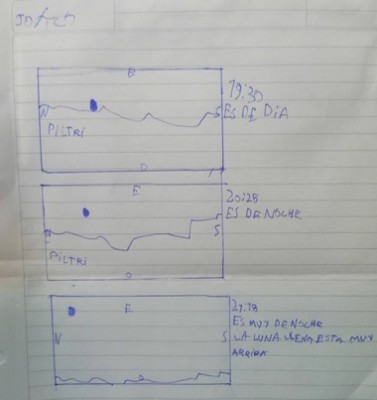 E
19:30
N
S
ES DE DIA
PILTRI
O
E
20:28
ES DE NOCHE
N
S
PILTRI
O
E
21:18
ES MUY DE NOCHE
N
S
LA LUNA LLENA ESTA MUY
ARRIBA